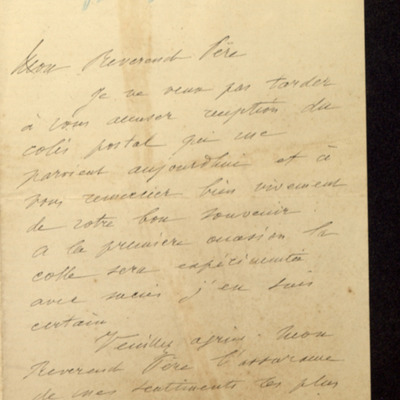 Mon Reverend Père
Je ne veux pas tarder
à vous accuser reception du
colis postal qui me
parvient aujourdhui et à
vous remercier bien vivement
de votre bon souvenir
a la première occasion la
colle sera expérimentée
avec succès j'en suis
certain
Veuillez agréer Mon
Reverend Père l'assurance
de mes sentiments les plus